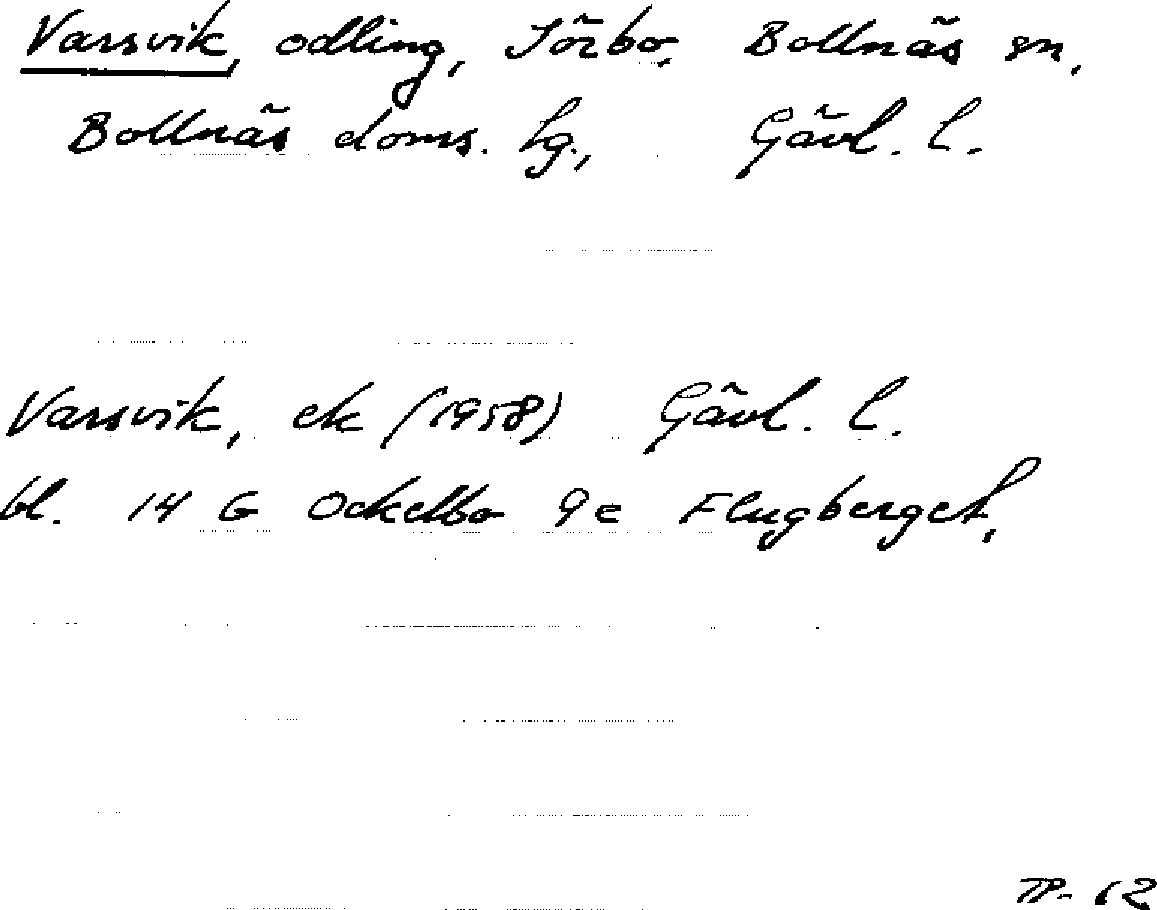 Varsvik, odling, Sörbo, Bollnäs sn,
Bollnäs doms. lg., Gävl. l.
Varsvik, ek (1958) Gävl. l.
bl. 14 G Ockelbo 9e Flugberget,
TP. 62